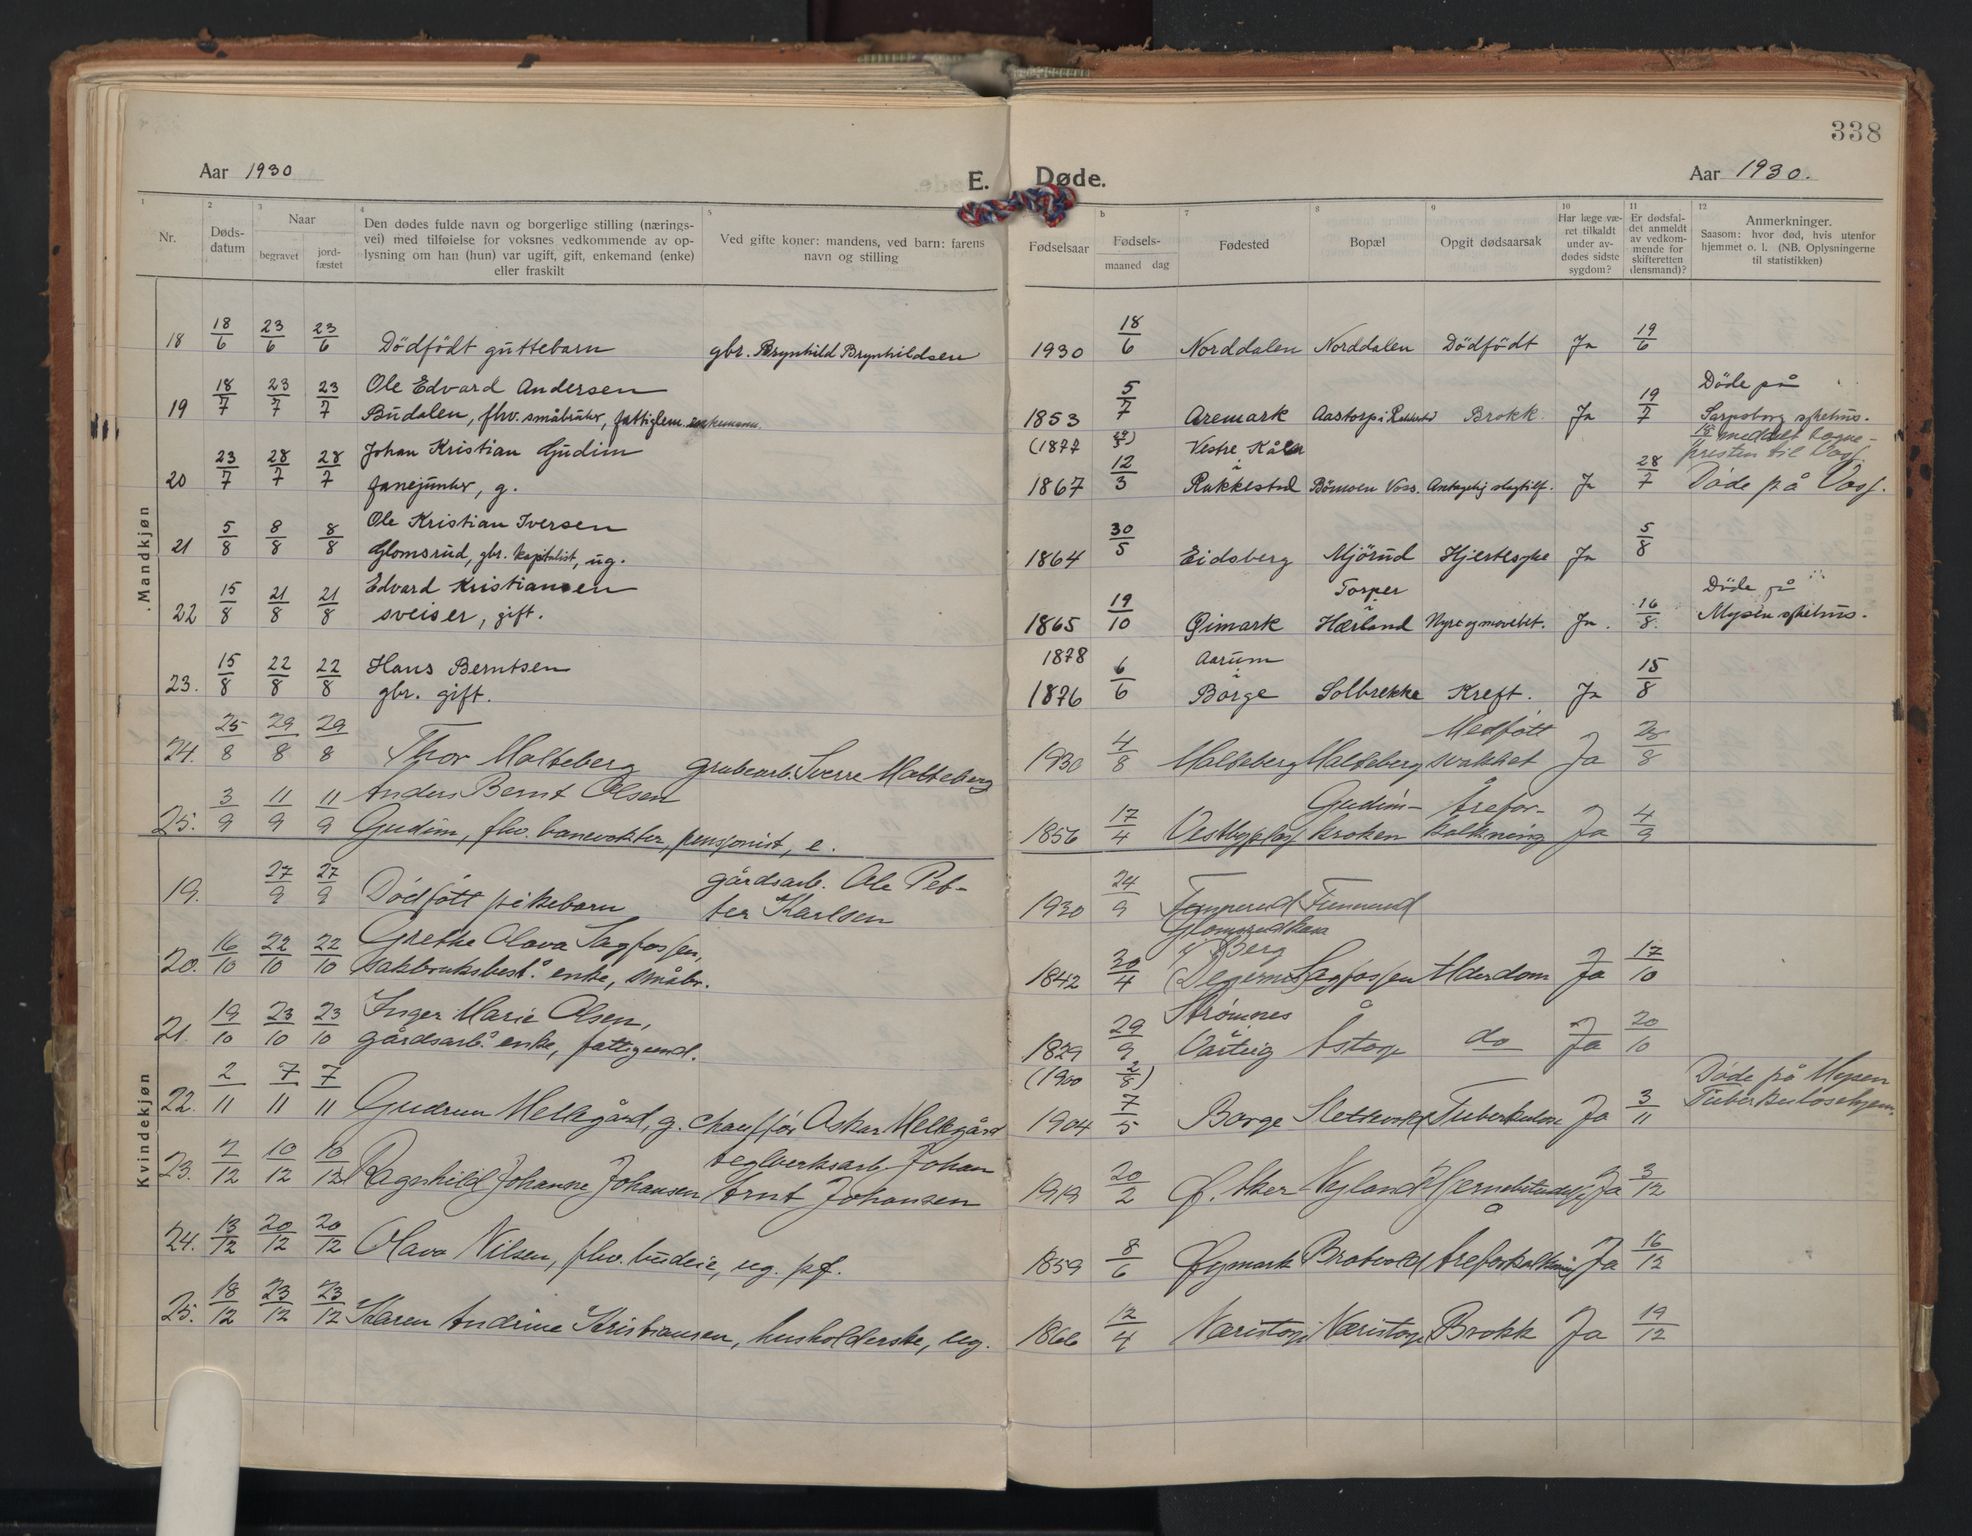 338
Aar 1930
E. Døde.
Aar 1930.
1 2 3 4 5 b 7 8 9 10 11 12
Nr.
Døds-
datum
Naar
begravet
jord-
fæstet
Den dødes fulde navn og borgerlige stilling (nærings-
vei) med tilføielse for voksnes vedkommende av op-
lysning om han (hun) var ugift, gift, enkemand (enke)
eller fraskilt
Ved gifte koner: mandens, ved barn: farens
navn og stilling
Fødselsaar
Fødsels-
maaned dag
Fødested
Bopæl
Opgit dødsaarsak
Har læge væ-
ret tilkaldt
under av-
dødes sidste
sygdom?
Er dødsfal-
det anmeldt
av vedkom-
mende for
skifteretten
(lensmand)?
Anmerkninger.
Saasom: hvor død, hvis utenfor
hjemmet o. l. (NB. Oplysningerne
til statistikken)
Mandkjøn
18 18/6 23/6 23/6 Dödfödt guttebarn gbr. Brynhild Brynhildsen 1930 18/6 Norddalen Norddalen Dödfödt Ja 19/6
Ole Edvard Andersen Döde på
19 18/7 23/7 23/7 Budalen, fhv. småbruker, fattiglem. enkemann. 1853 5/7 Aremark Aastorp i Rakkestad Brokk. Ja 19/7 Sarpsborg sykehus.
Johan Kristian Gudim (1877 Vestre Kåler 18/ meddelt sogne-
i presten til Voss.
20 23/7 28/7 28/7 fanejunker, g. 1867 12/3 Rakkestad Bömoen Voss. Antagelig slagtilf. Ja 28/7 Døde på Voss.
Ole Kristian Iversen
21 5/8 8/8 8/8 Glomsrud, gbr. kapitalist, ug. 1864 30/5 Eidsberg Mjörud Hjertesyke Ja 5/8
Edvard Kristiansen Torper Döde på
22 15/8 21/8 21/8 sveiser, gift. 1865 19/10 Øimark i Hærland Ja. 16/8. Mysen sykehus.
Hans Berntsen 1878 Aarum
23. 15/8 22/8 22/8 gbr. gift. 1876 6/6 i Borge Solbrekke Kreft. Ja 15/8
Medføtt
24. 25/8 29/8 29/8 Thor Malteberg grubearb. Sverre Malteberg 1930 4/8 Malteberg Malteberg svakhet Ja /8
Anders Bernt Olsen Gudim- Årefor-
25. 3/9 11/9 11/9 Gudim, fhv. banevokter, pensjonist, e. 1856 17/4 kroken kalkning Ja 4/9
Kvindekjøn
gårdsarb. Ole Pet-
19. 27/9 27/9 Dødføtt pikebarn ter Karlsen 1930 24/9
Grethe Olava Sagfossen, i Berg
20. 16/10 22/10 22/10 sakbruksbest.s enke, småbr. 1842 30/4 (Degernes Sagfossen Alderdom Ja 17/10
Inger Marie Olsen, Strømnes
21. 19/10 23/10 23/10 gårdsarb.s enke, fattigund. 1829 29/9 i Varteig Åstorp do Ja 20/10
(1900 2/8) Døde på Mysen
22. 2/11 7/11 7/11 Gudrun Melkgård, g. chauffør Oskar Melkgård 1904 7/5 Borge Tuberkulose Ja 3/11 Tuberkulosehjem.
teglverksarb. Johan
23. 2/12 10/12 10/12 Ragnhild Johanne Johansen Arnt Johansen 1919 20/2 Ø. Aker Nyland Ja 3/12
24. 13/12 20/12 20/12 Olava Nilsen, fhv. budeie, ug. pf. 1859 8/6 Øymark Bratvold Åreforkalkning Ja 16/12
25. 18/12 23/12 23/12 Karen Andrine Kristiansen, husholderske, ug. 1866 12/4 Næristorp Næristorp Brokk Ja 19/12